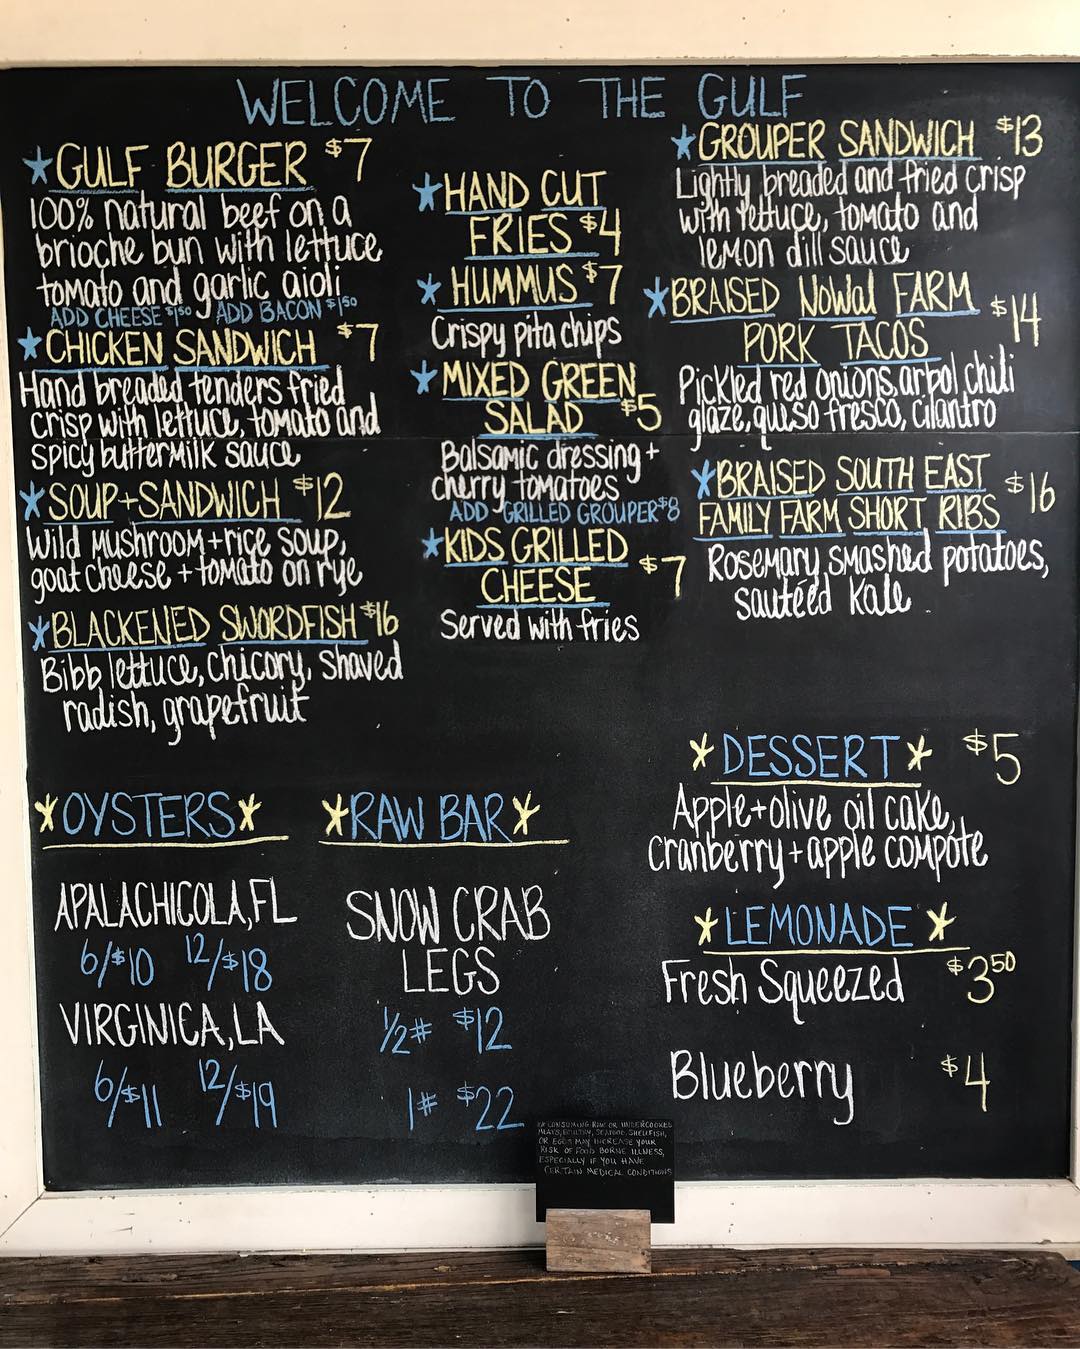 WELCOME TO THE GULF
★GULF BURGER $7
100% natural beef on a
brioche bun with lettuce
tomato and garlic aioli
ADD CHEESE $1⁵⁰ ADD BACON $1⁵⁰
★CHICKEN SANDWICH $7
Hand breaded tenders fried
crisp with lettuce, tomato and
spicy buttermilk sauce
★SOUP+SANDWICH $12
Wild mushroom+rice soup,
goat cheese + tomato on rye
★BLACKENED SWORDFISH $16
Bibb lettuce, chicory, shaved
radish, grapefruit
★HAND CUT
FRIES $4
★HUMMUS $7
Crispy pita chips
★MIXED GREEN
SALAD $5
Balsamic dressing +
cherry tomatoes
ADD GRILLED GROUPER $8
★KIDS GRILLED
CHEESE $7
Served with fries
★GROUPER SANDWICH $13
Lightly breaded and fried crisp
with lettuce, tomato and
lemon dill sauce
★BRAISED NoWal FARM
PORK TACOS $14
Pickled red onions, arbol chili
glaze, queso fresco, cilantro
★BRAISED SOUTH EAST
FAMILY FARM SHORT RIBS $16
Rosemary smashed potatoes,
sautéed kale
*OYSTERS*
APALACHICOLA, FL
6/$10 12/$18
VIRGINICA, LA
6/$11 12/$19
*RAW BAR*
SNOW CRAB
LEGS
1/2# $12
1# $22
*DESSERT* $5
Apple+olive oil cake,
cranberry+apple compote
*LEMONADE*
Fresh Squeezed $3⁵⁰
Blueberry $4
CONSUMING RAW OR UNDERCOOKED
MEATS, POULTRY, SEAFOOD, SHELLFISH,
OR EGGS MAY INCREASE YOUR
RISK OF FOOD BORNE ILLNESS,
ESPECIALLY IF YOU HAVE
CERTAIN MEDICAL CONDITIONS